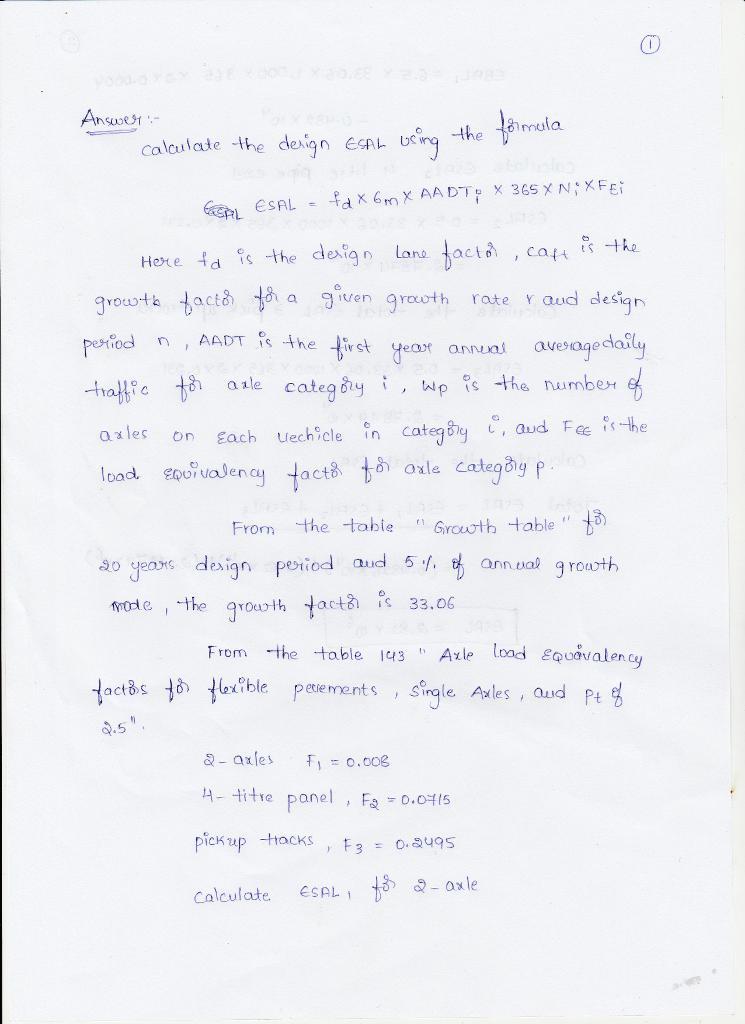 1
Answer :-
calculate the design ESAL using the formula
ESAL = fd x Gm x AADTi x 365 x Ni x FEi
Here fd is the design Lane factor , Caft is the
growth factor for a given growth rate r and design
period n , AADT is the first year annual average daily
traffic for axle category i , Wp is the number of
axles on Each vechicle in category i , and FEE is the
load Equivalency factor for axle category p .
From the table " Growth table " for
20 years design period and 5 % of annual growth
mode , the growth factor is 33.06
From the table 143 " Axle load Equavalency
factors for flexible pevements , Single Axles , and Pt of
2.5" .
2 - axles F1 = 0.008
4 - titre panel , F2 = 0.0715
pickup tracks , F3 = 0.2495
calculate ESAL1 for 2 - axle